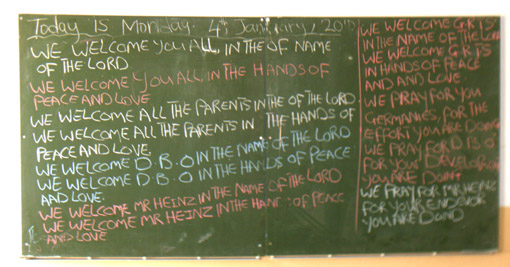 Today is Monday. 4th January, 20
WE WELCOME YOU ALL, IN THE OF NAME
OF THE LORD
WE WELCOME YOU ALL, IN THE HANDS OF
PEACE AND LOVE
WE WELCOME ALL THE PARENTS IN THE OF THE LORD
WE WELCOME ALL THE PARENTS IN THE HANDS OF
PEACE AND LOVE.
WE WELCOME D.B.O IN THE NAME OF THE LORD
WE WELCOME D.B.O IN THE HANDS OF PEACE
AND LOVE.
WE WELCOME MR HEINZ IN THE NAME OF THE LORD
WE WELCOME MR HEINZ IN THE HANT : OF PEACE
AND LOVE
WE WELCOME G.R.T.S
IN THE NAME OF THE LORD
WE WELCOME G.R.T.S
IN HANDS OF PEACE
AND AND LOVE.
WE PRAY FOR YOU
GERMANIES, FOR THE
EFFORT YOU ARE DOING
WE PRAY FOR D.B.O
FOR YOUR
YOU ARE DOING
WE PRAY FOR MR HEINZ
FOR YOUR ENDEVOR
YOU ARE DOIND